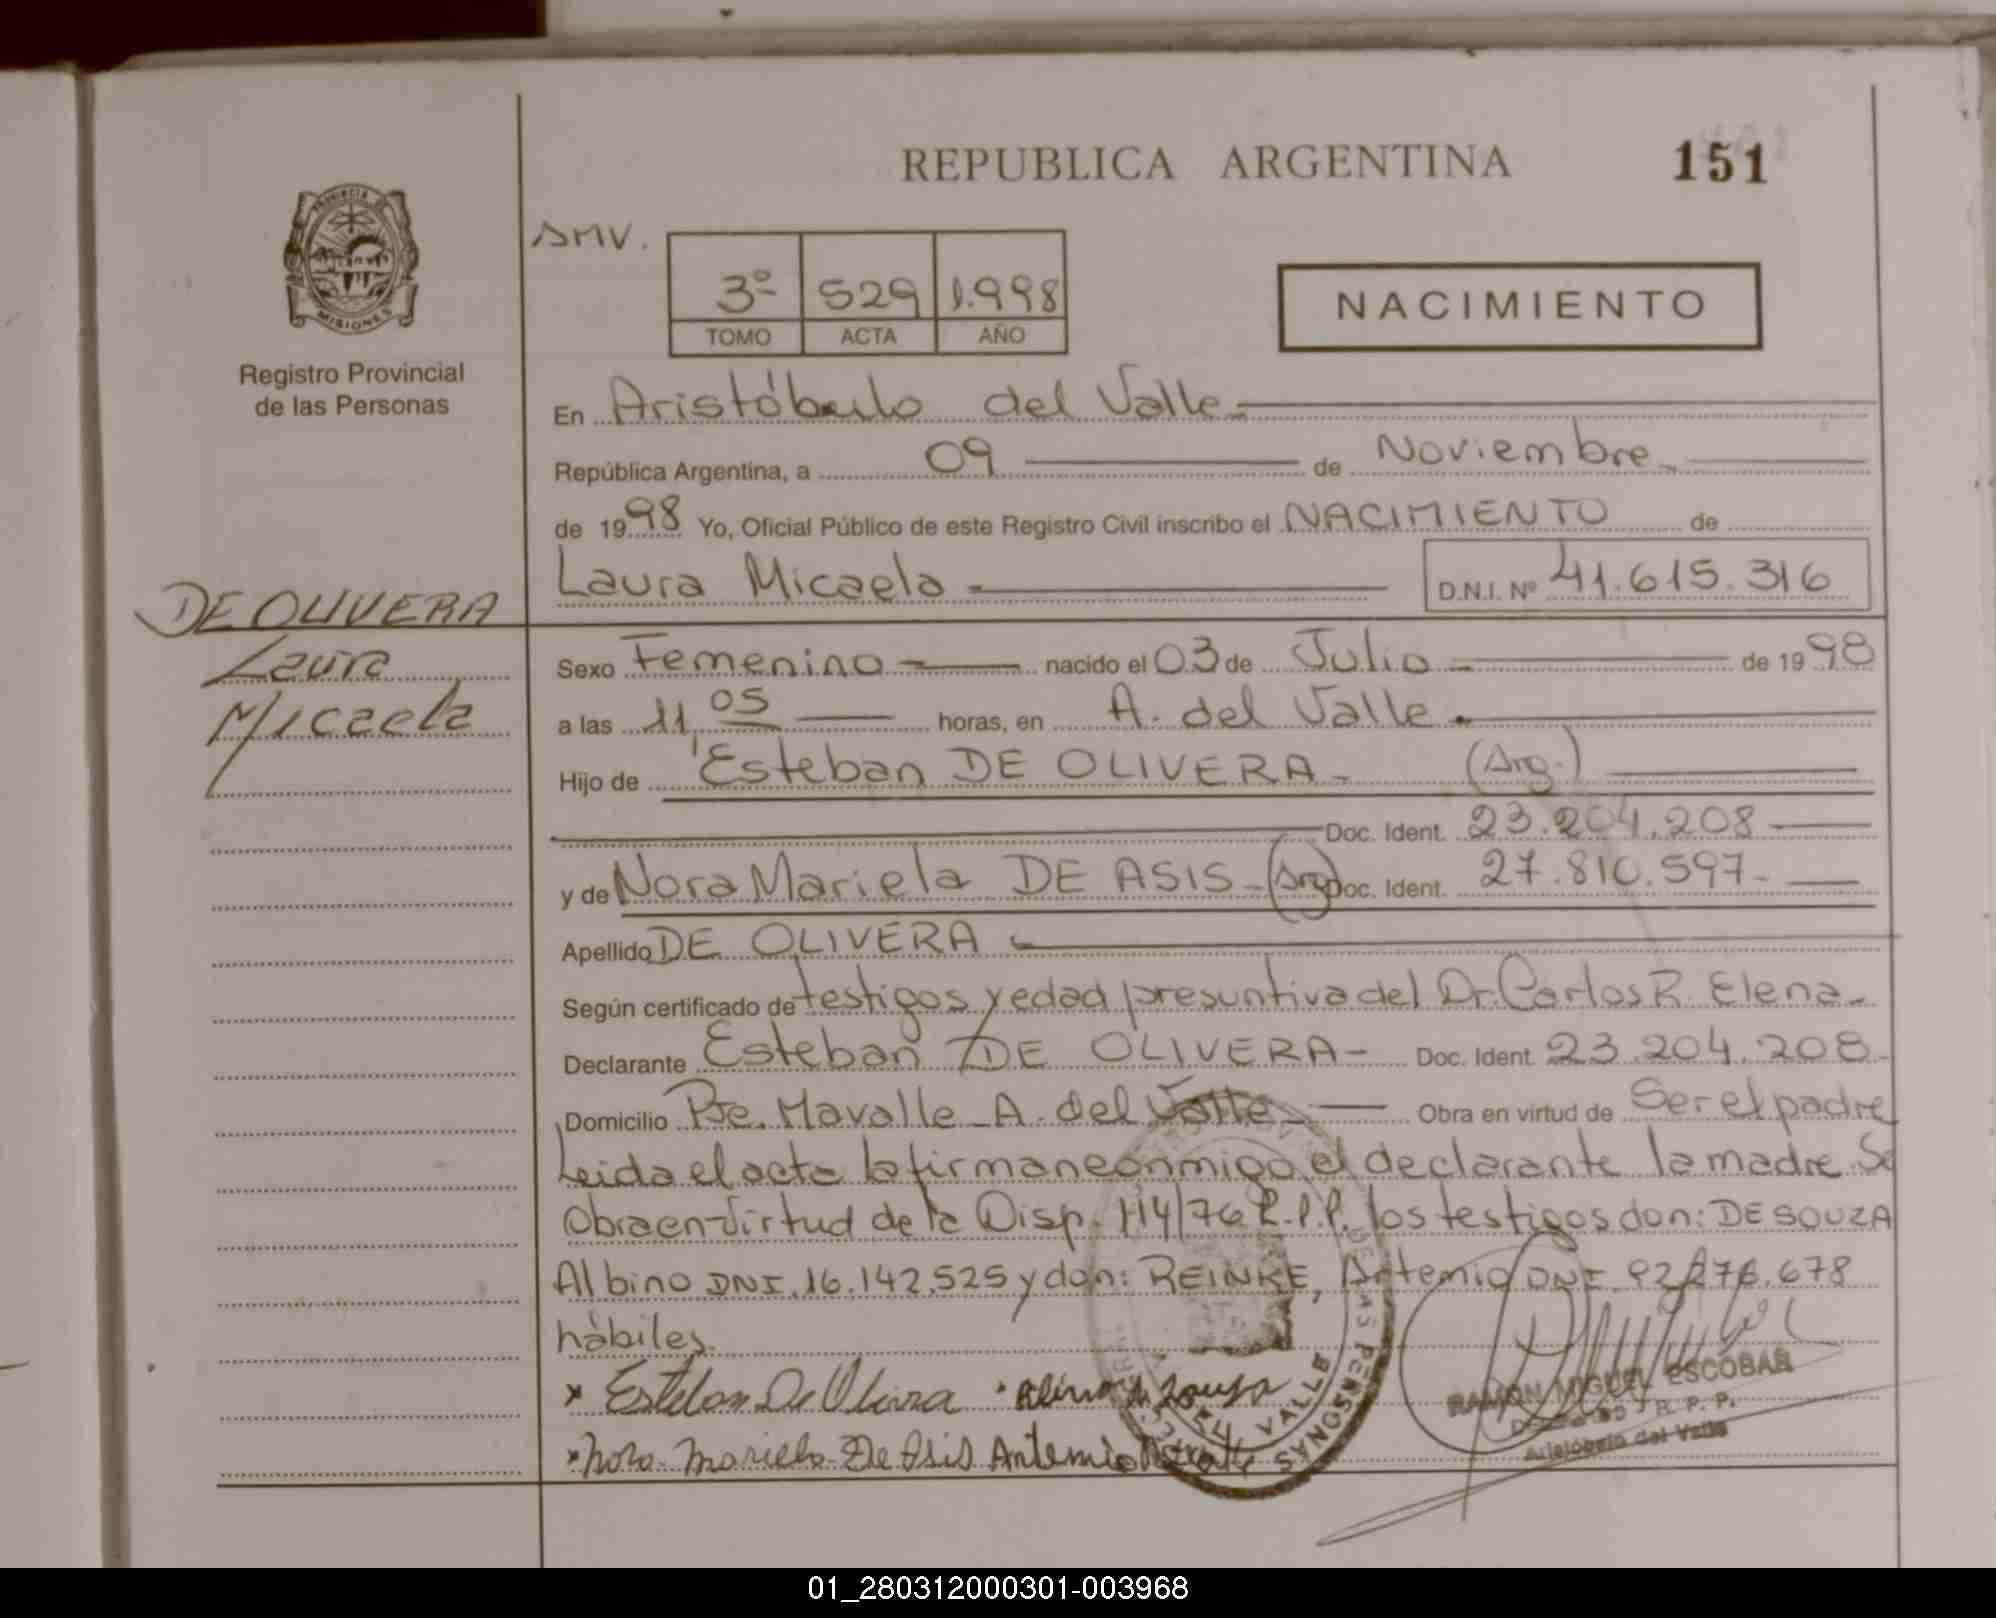 REPUBLICA ARGENTINA
151
PROVINCIA DE
MISIONES
Registro Provincial
de las Personas
SMV.
3º 529 1.998
TOMO ACTA AÑO
NACIMIENTO
En Aristóbulo del Valle
República Argentina, a 09 de Noviembre
de 1998 Yo, Oficial Público de este Registro Civil inscribo el NACIMIENTO de
Laura Micaela D.N.I. Nº 41.615.316
DE OLIVERA
Laura
Micaela
Sexo Femenino nacido el 03 de Julio de 1998
a las 11,05 horas, en A. del Valle.
Hijo de Esteban DE OLIVERA - (Arg.)
Doc. Ident. 23.204.208
y de Nora Mariela DE ASIS - (Arg) Doc. Ident. 27.810.597-
Apellido DE OLIVERA
Según certificado de testigos y edad presuntiva del Dr. Carlos R. Elena-
Declarante Esteban DE OLIVERA- Doc. Ident. 23.204.208-
Domicilio Pje. Mavalle - A. del Valle - Obra en virtud de Ser el padre
Leida el acta la firman conmigo el declarante la madre. Se
Obra en virtud de la Disp. 114/76 R.P.P. los testigos don: DE SOUZA
Albino DNI. 16.142.525 y don: REINKE, Artemio DNI 92.276.678
hábiles.
x Esteban De Olivera
x Nora Mariela De Asis Artemio
DE LAS PERSONAS
DEL VALLE
RAMON MIGUEL ESCOBAR
R. P. P.
Aristóbulo del Valle
01_280312000301-003968